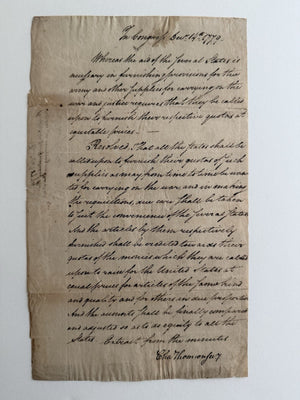 In Congress Decr. 14th. 1779.
Whereas the aid of the several States is
necessary in furnishing provisions for the
army and other supplies for carrying on the
war and justice requires that they be called
upon to furnish their respective quotas at
equitable prices —
Resolved, That all the States shall be
called upon to furnish their quotas of such
supplies as may from time to time be wan
ted for carrying on the war and in making
the requisitions, due care shall be taken
to suit the convenience of the several States
And the articles by them respectively
furnished shall be credited towards their
quotas of the monies which they are called
upon to raise for the United States at
equal prices for articles of the same kind
and quality and for others in due proportion
And the accounts shall be finally compared
and adjusted so as to do equity to all the
States. Extract from the minutes
Cha Thomson secy